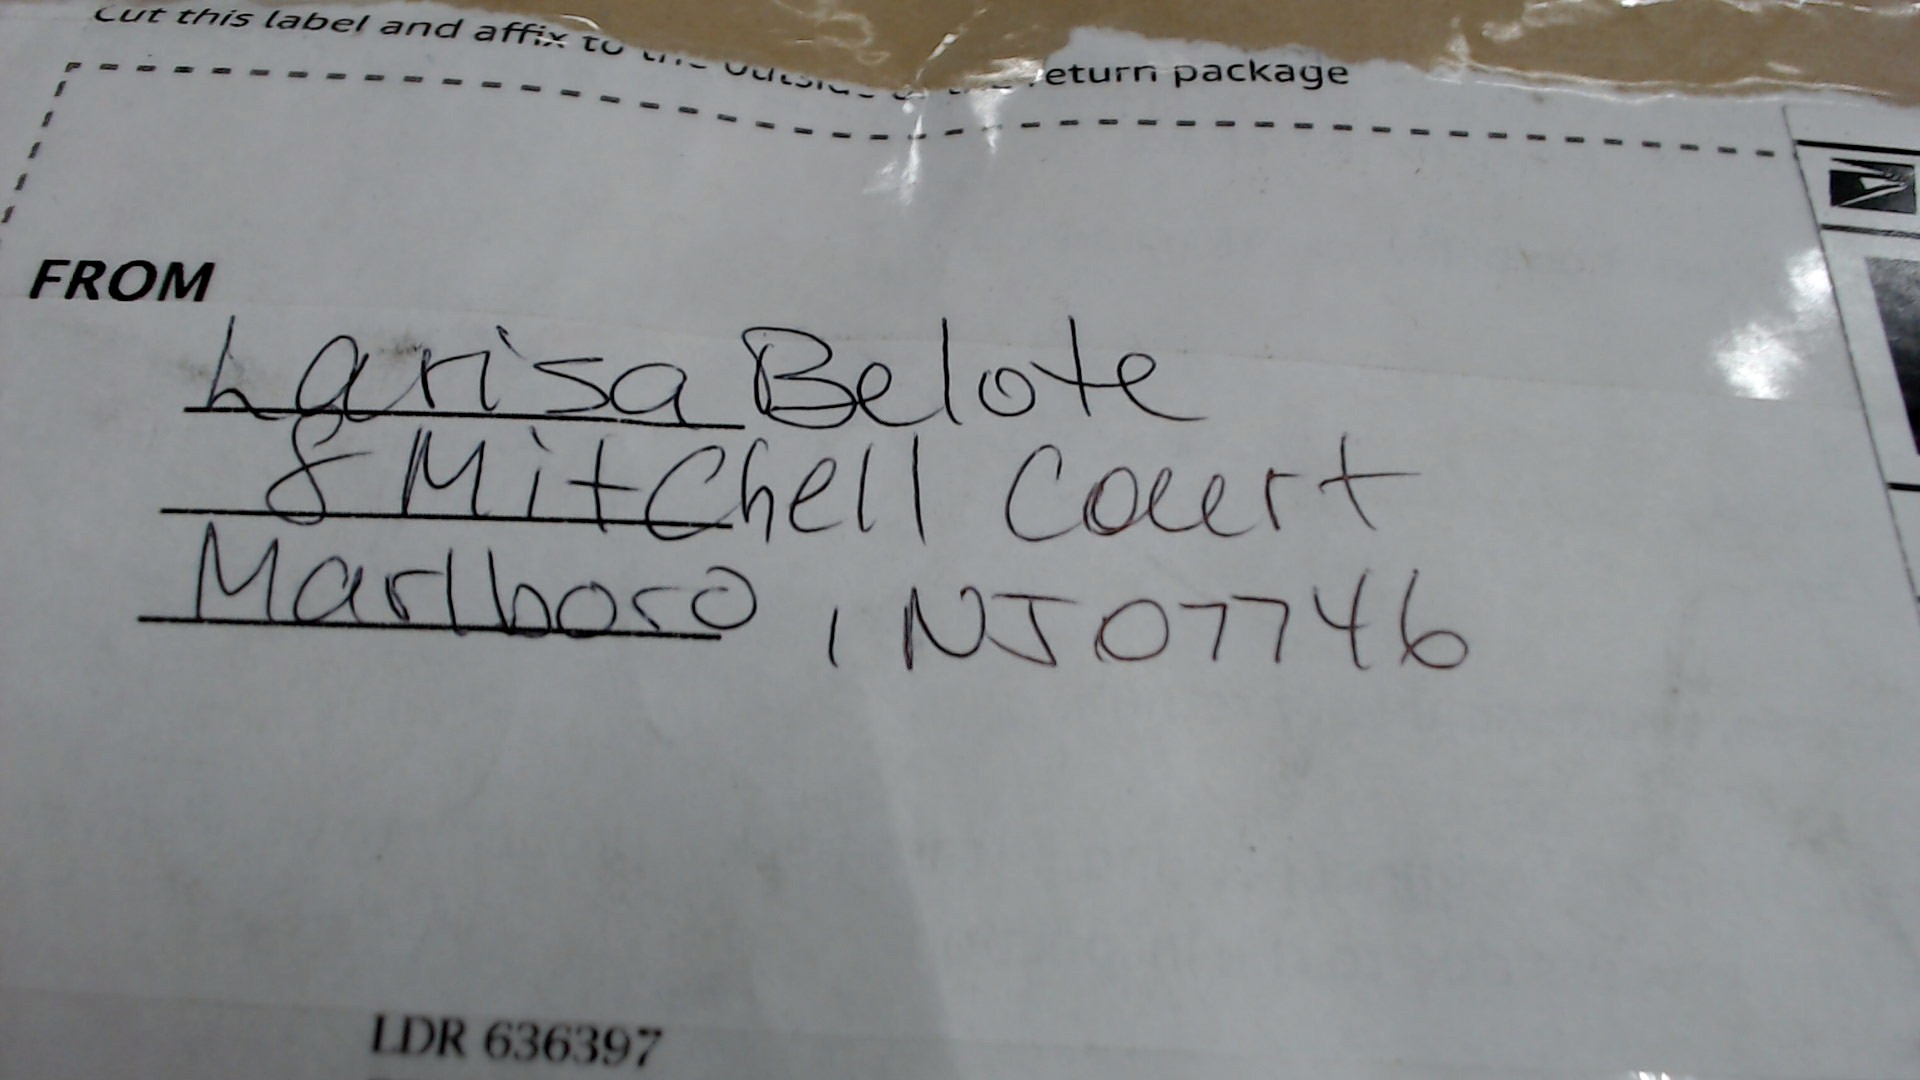 Cut this label and affix to the outside of the return package
FROM
Larisa Belote
8 Mitchell Court
Marlboro, NJ 07746
LDR 636397